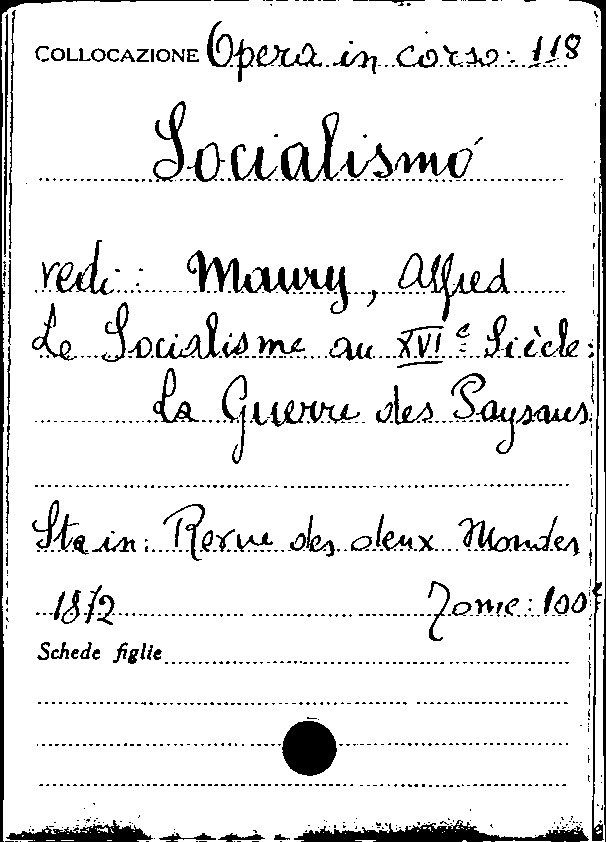 COLLOCAZIONE Opera in corso: 118
Socialismo
vedi: Maury, Alfred
Le Socialisme au XVIe Siècle:
La Guerre des Paysans
Sta in: Revue des deux Mondes
1872 Tome: 100e
Schede figlie